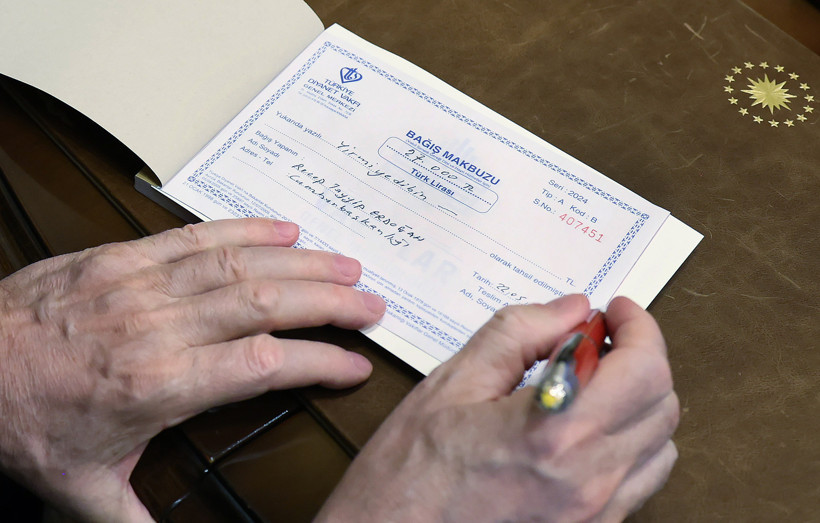 TÜRKİYE
DİYANET VAKFI
GENEL MERKEZİ
BAĞIŞ MAKBUZU
27.000 TL
Türk Lirası
Seri : 2024
Tip : A Kod : B
S.No: 407451
Yukarıda yazılı Yirmiyedibin TL.
olarak tahsil edilmiştir
Bağış Yapanın
Adı, Soyadı
Adres - Tel
Recep Tayyip ERDOĞAN
Cumhurbaşkanı
Tarih: 22.05
Teslim
Adı, Soyadı